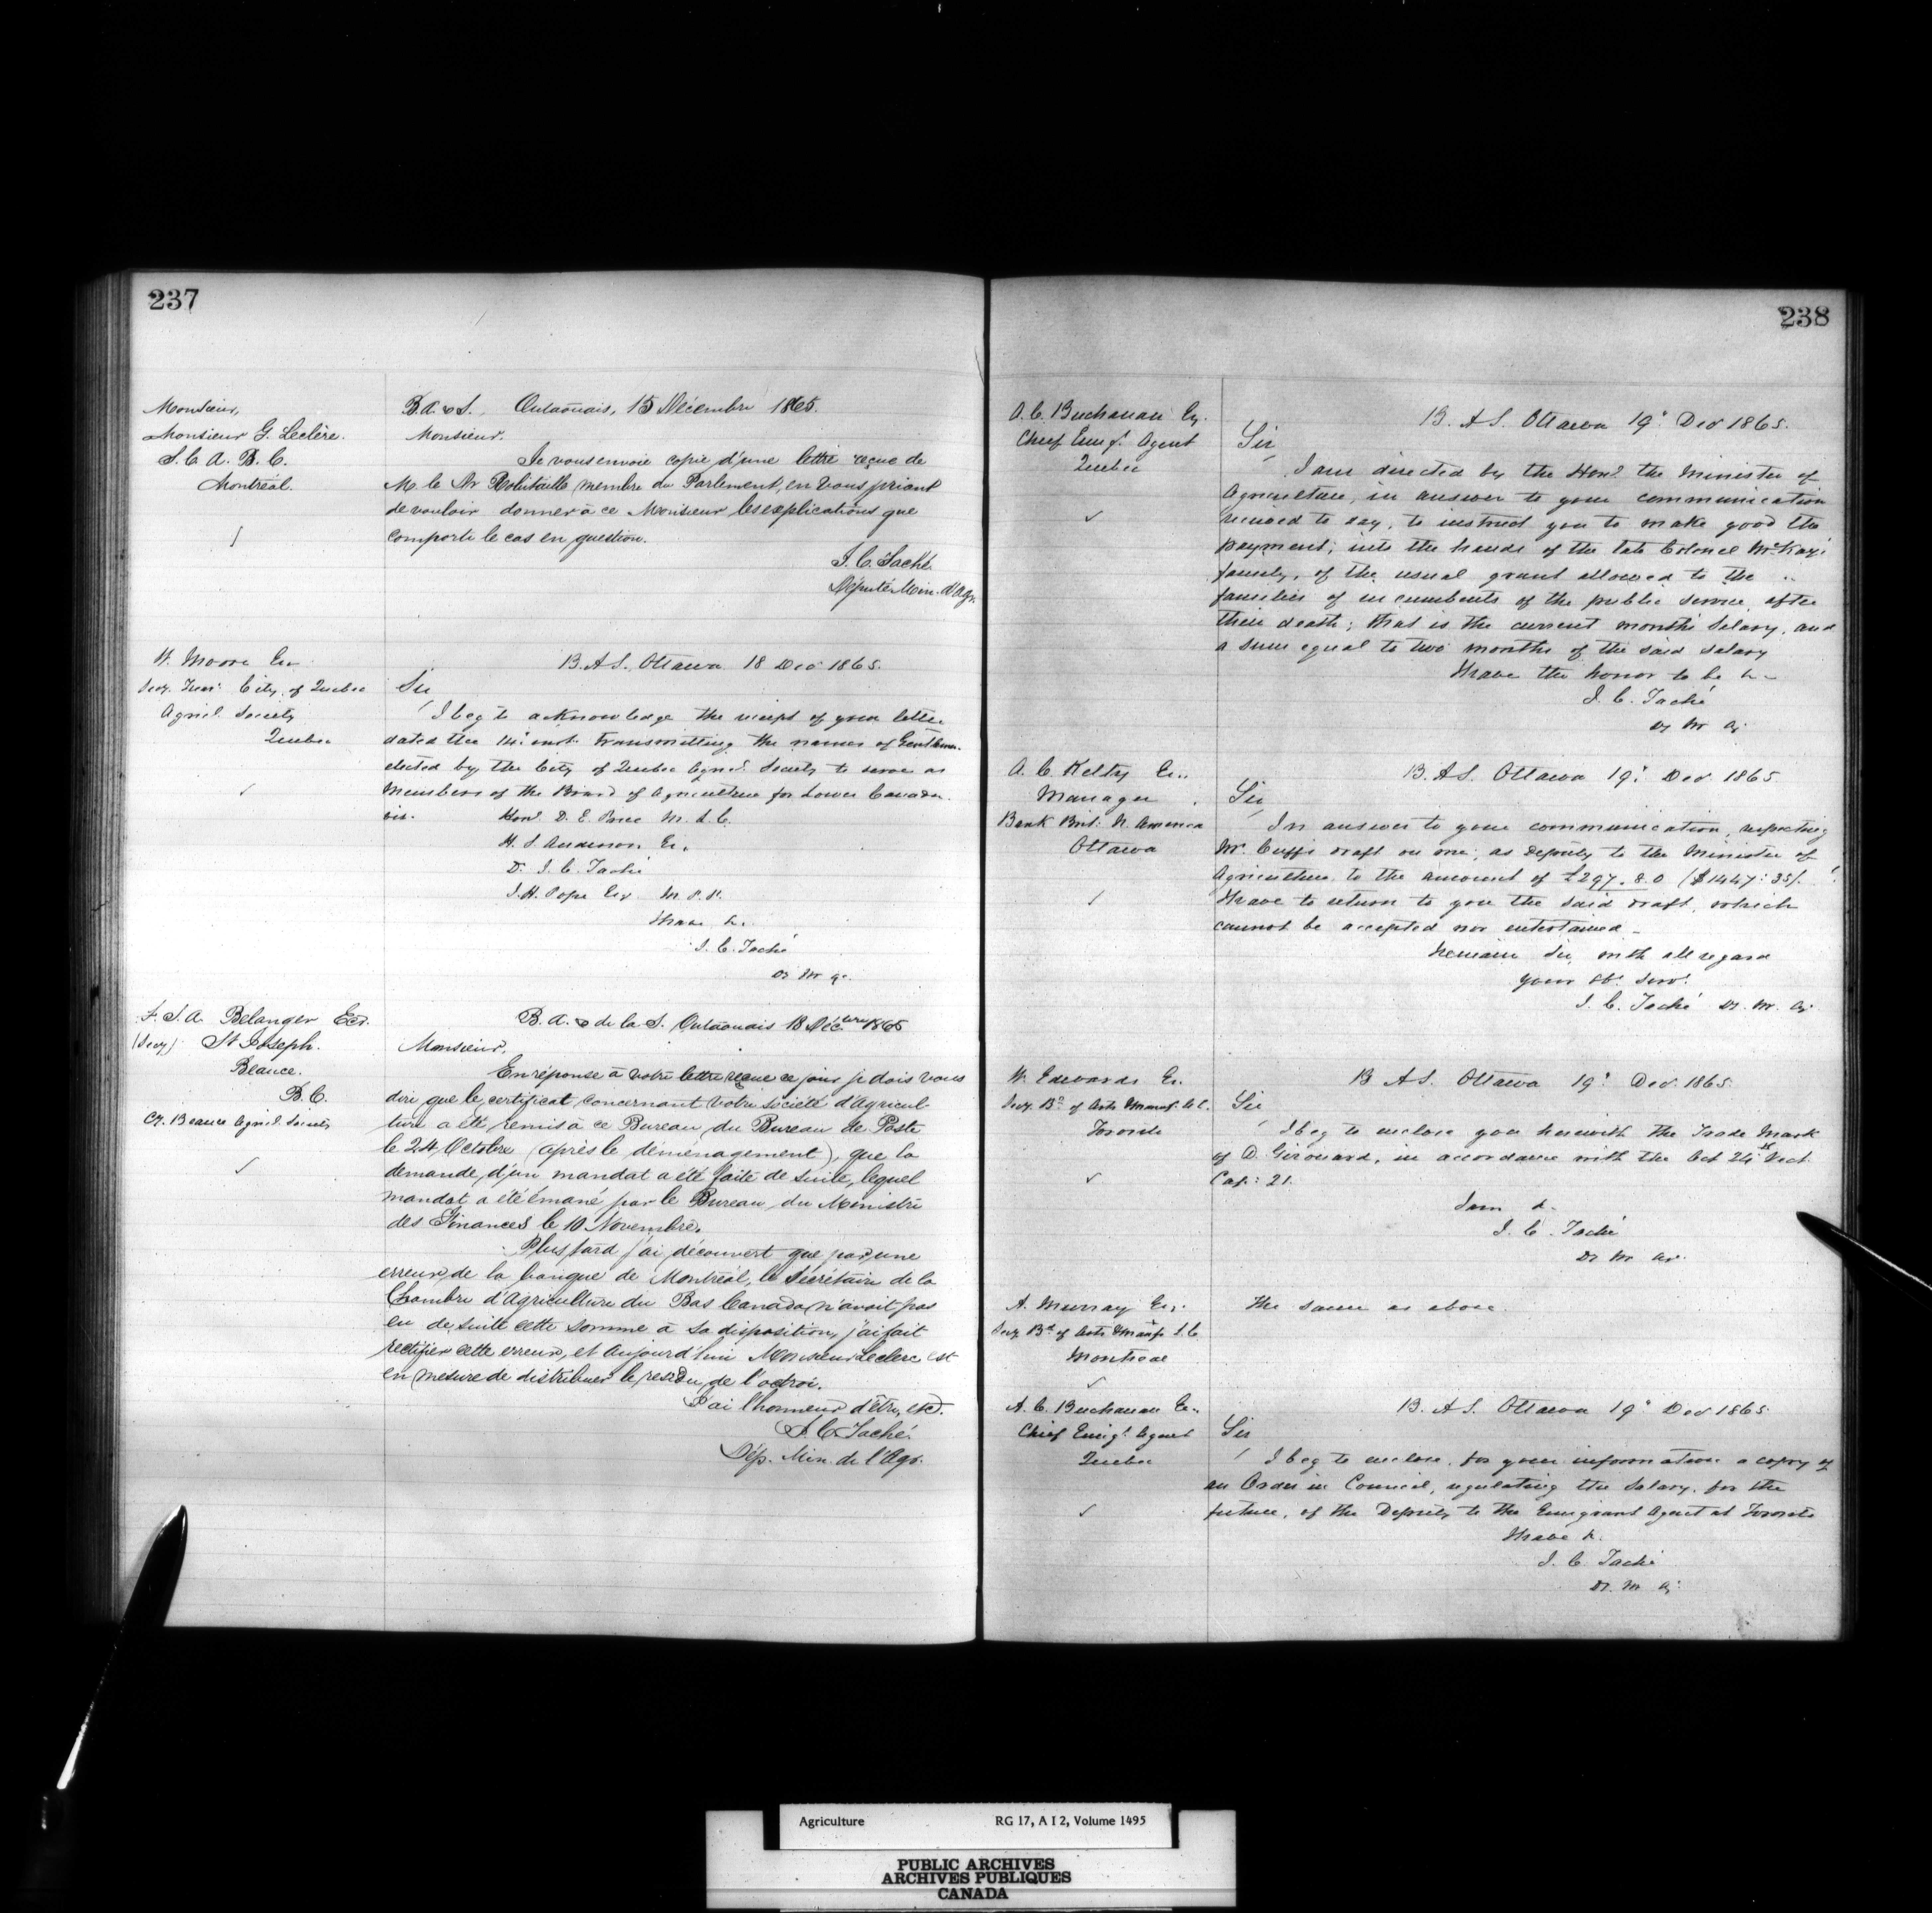 237
Monsieur,
Monsieur G. Leclère.
S. C. A. B. C.
Montréal.
B. A. & S., Outaouais, 15 Décembre 1865.
Monsieur.
Je vous envoie copie d'une lettre reçue de
M. le Dr Robitaille membre du Parlement, en vous priant
de vouloir donner à ce Monsieur les explications que
comporte le cas en question.
J. C. Taché
Député Min. d'Agr.
W. Moore Er
Secy. Trear. City of Quebec
Agricl. Society
Quebec
B. A S. Ottawa 18 Decr 1865.
Sir
I beg to acknowledge the receipt of your letter
dated the 14: inst. transmitting the names of Gentlemen
elected by the City of Quebec Agricl. Society to serve as
Members of the Board of Agriculture for Lower Canada.
viz. Honl. D. E. Price M. L. C.
H. S. Anderson Er.
Dr. J. C. Taché
J. H. Pope Esr M. P. P.
I have &.
J. C. Taché
Dy M A.
F. S. A. Belanger Ecr.
(Secy) St Joseph.
Beauce.
B. C.
Cy. Beauce Agricl. Society
B. A. & de la S. Outaouais 18 Décbre 1865
Monsieur,
En réponse à votre lettre reçue ce jour je dois vous
dire que le certificat concernant votre société d'Agricul-
ture a été remis à ce Bureau du Bureau de Poste
le 24 Octobre (après le déménagement), que la
demande d'un mandat a été faite de suite, lequel
mandat a été émané par le Bureau du Ministre
des Finances le 10 Novembre.
Plus tard j'ai découvert que par une
erreur de la banque de Montréal, le Secrétaire de la
Chambre d'Agriculture du Bas Canada n'avait pas
eu de suite cette somme à sa disposition, j'ai fait
rectifier cette erreur, et aujourd'hui Monsieur Leclerc est
en mesure de distribuer le residu de l'octroi.
J'ai l'honneur d'être, etc.
J. C. Taché.
Dép. Min. de l'Agr.
238
A. C. Buchanan Er.
Chief Emigt. Agent
Quebec
B. A S. Ottawa 19: Decr 1865.
Sir
I am directed by the Honl. the Minister of
Agriculture, in answer to your communication
received to day, to instruct you to make good the
payment, into the hands of the late Colonel McKay's
family, of the usual grant allowed to the
families of incumbents of the public service after
their death; that is the current month's salary, and
a sum equal to two months of the said salary
I have the honor to be &
J. C. Taché
Dy M A.
A. C. Kelty Er.
Manager
Bank Brit. N. America
Ottawa
B. A S. Ottawa 19: Decr 1865
Sir
In answer to your communication, respecting
Mr. Cuffs draft on me, as Deputy to the Minister of
Agriculture to the amount of £297. 8. 0 ($1447: 35/.
I have to return to you the said draft, which
cannot be accepted nor entertained –
I remain Sir, with all regard
your obt. Servt.
J. C. Taché Dy. M. A.
W. Edwards Er.
Secy. Bd. of Arts & Manufs. U. C.
Toronto
B A S. Ottawa 19: Decr. 1865.
Sir
I beg to enclose you herewith the Trade Mark
of D. Girouard, in accordance with the Act 24th Vict.
Cap: 21.
I am &.
J. C. Taché
Dy M Ar.
A. Murray Er.
Secy Bd of Arts & Manfs L. C.
Montreal
The same as above
A. C. Buchanan Er.
Chief Emigt. Agent
Quebec
B. A S. Ottawa 19: Decr 1865.
Sir
I beg to enclose, for your information a copy of
an Order in Council, regulating the Salary, for the
future, of the Deputy to the Emigrant Agent at Toronto
I have &.
J. C. Taché
Dy. M A.
Agriculture RG 17, A I 2, Volume 1495
PUBLIC ARCHIVES
ARCHIVES PUBLIQUES
CANADA